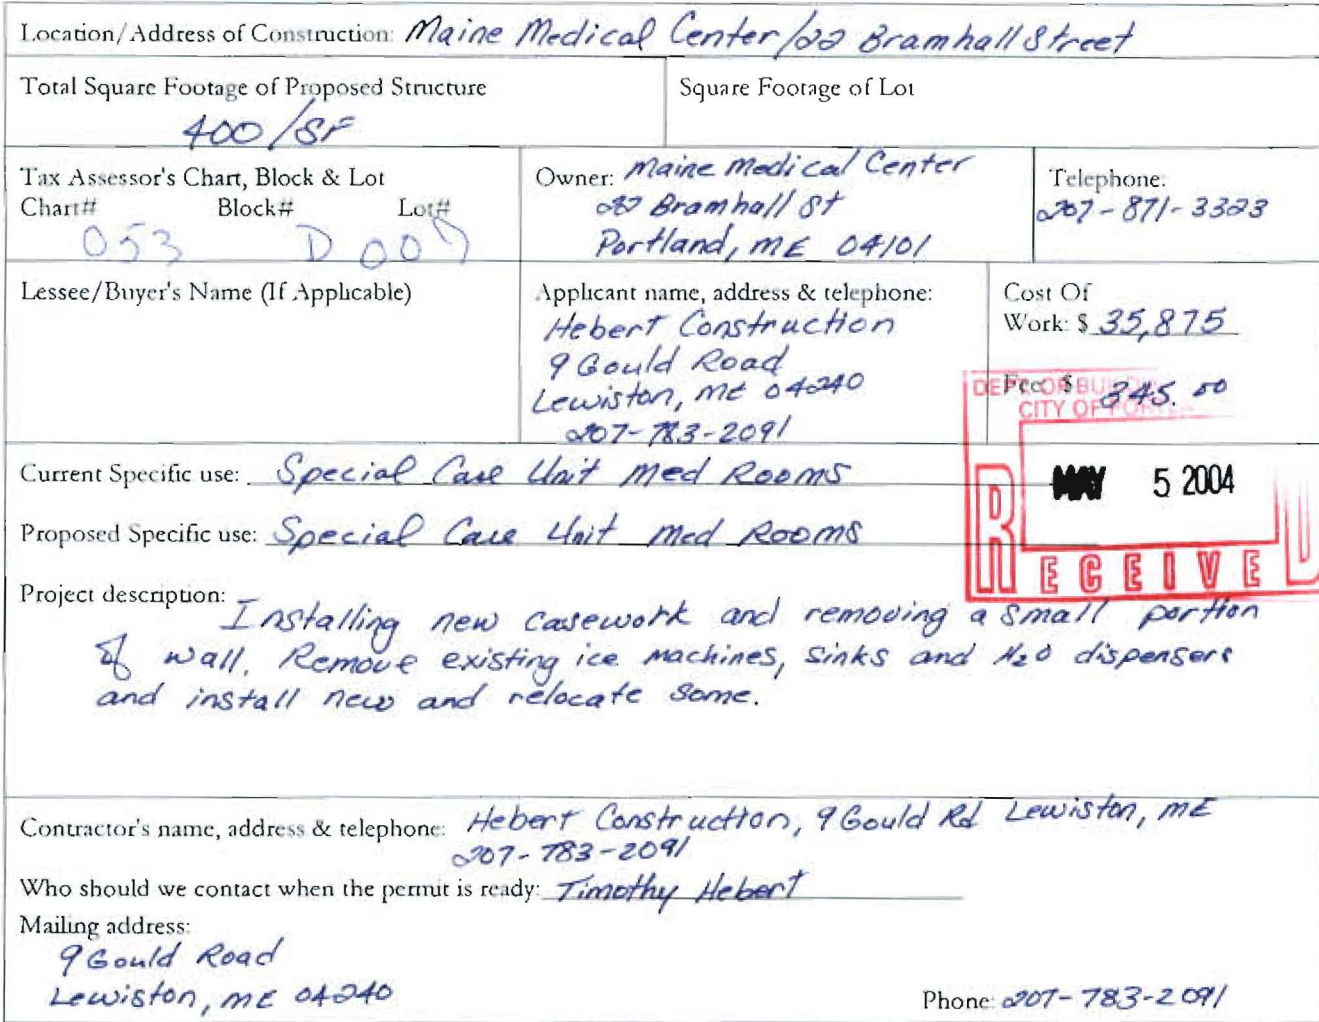 Location/Address of Construction: Maine Medical Center/22 Bramhall Street
Total Square Footage of Proposed Structure
400/SF
Square Footage of Lot
Tax Assessor's Chart, Block & Lot
Chart# Block# Lot#
053 D 007
Owner: Maine Medical Center
22 Bramhall St
Portland, ME 04101
Telephone:
207-871-3323
Lessee/Buyer's Name (If Applicable)
Applicant name, address & telephone:
Hebert Construction
9 Gould Road
Lewiston, ME 04240
207-783-2091
Cost Of
Work: $ 35,875
Fee: $ 345.00
DEPT. OF
CITY OF
MAY 5 2004
RECEIVED
Current Specific use: Special Care Unit Med Rooms
Proposed Specific use: Special Care Unit Med Rooms
Project description:
Installing new casework and removing a small portion
of wall. Remove existing ice machines, sinks and H2O dispensers
and install new and relocate some.
Contractor's name, address & telephone: Hebert Construction, 9 Gould Rd Lewiston, ME
207-783-2091
Who should we contact when the permit is ready: Timothy Hebert
Mailing address:
9 Gould Road
Lewiston, ME 04240
Phone: 207-783-2091